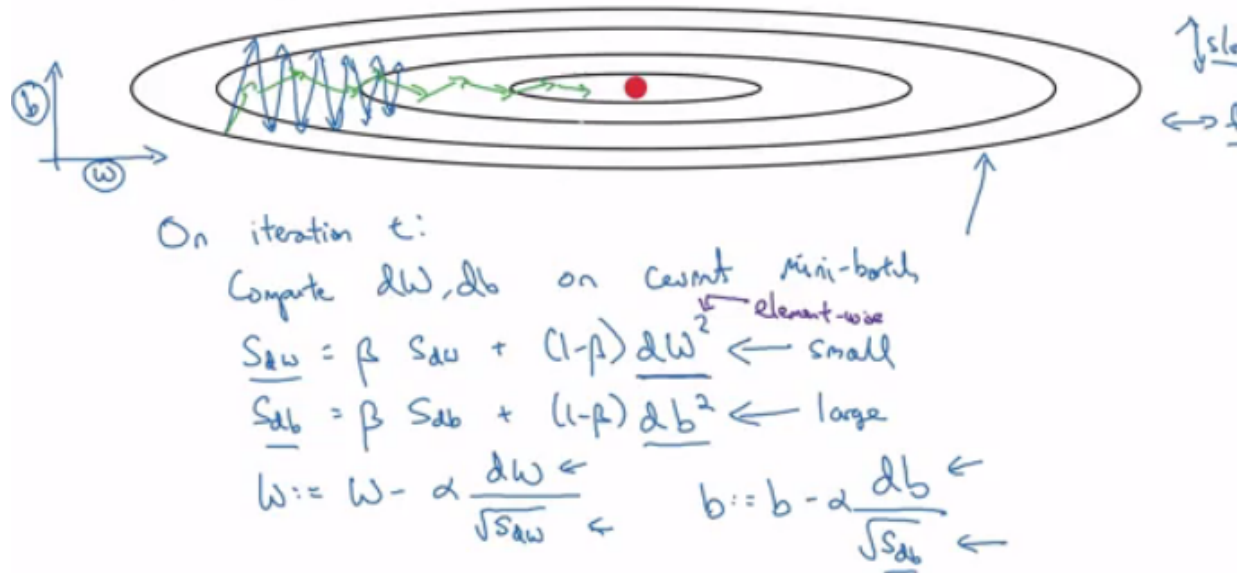 slo
b
w
f
On iteration t:
Compute dW, db on current mini-batch
element-wise
Sdw = β Sdw + (1-β) dW² ← small
Sdb = β Sdb + (1-β) db² ← large
W := W - α dW / √Sdw ← b := b - α db / √Sdb ←